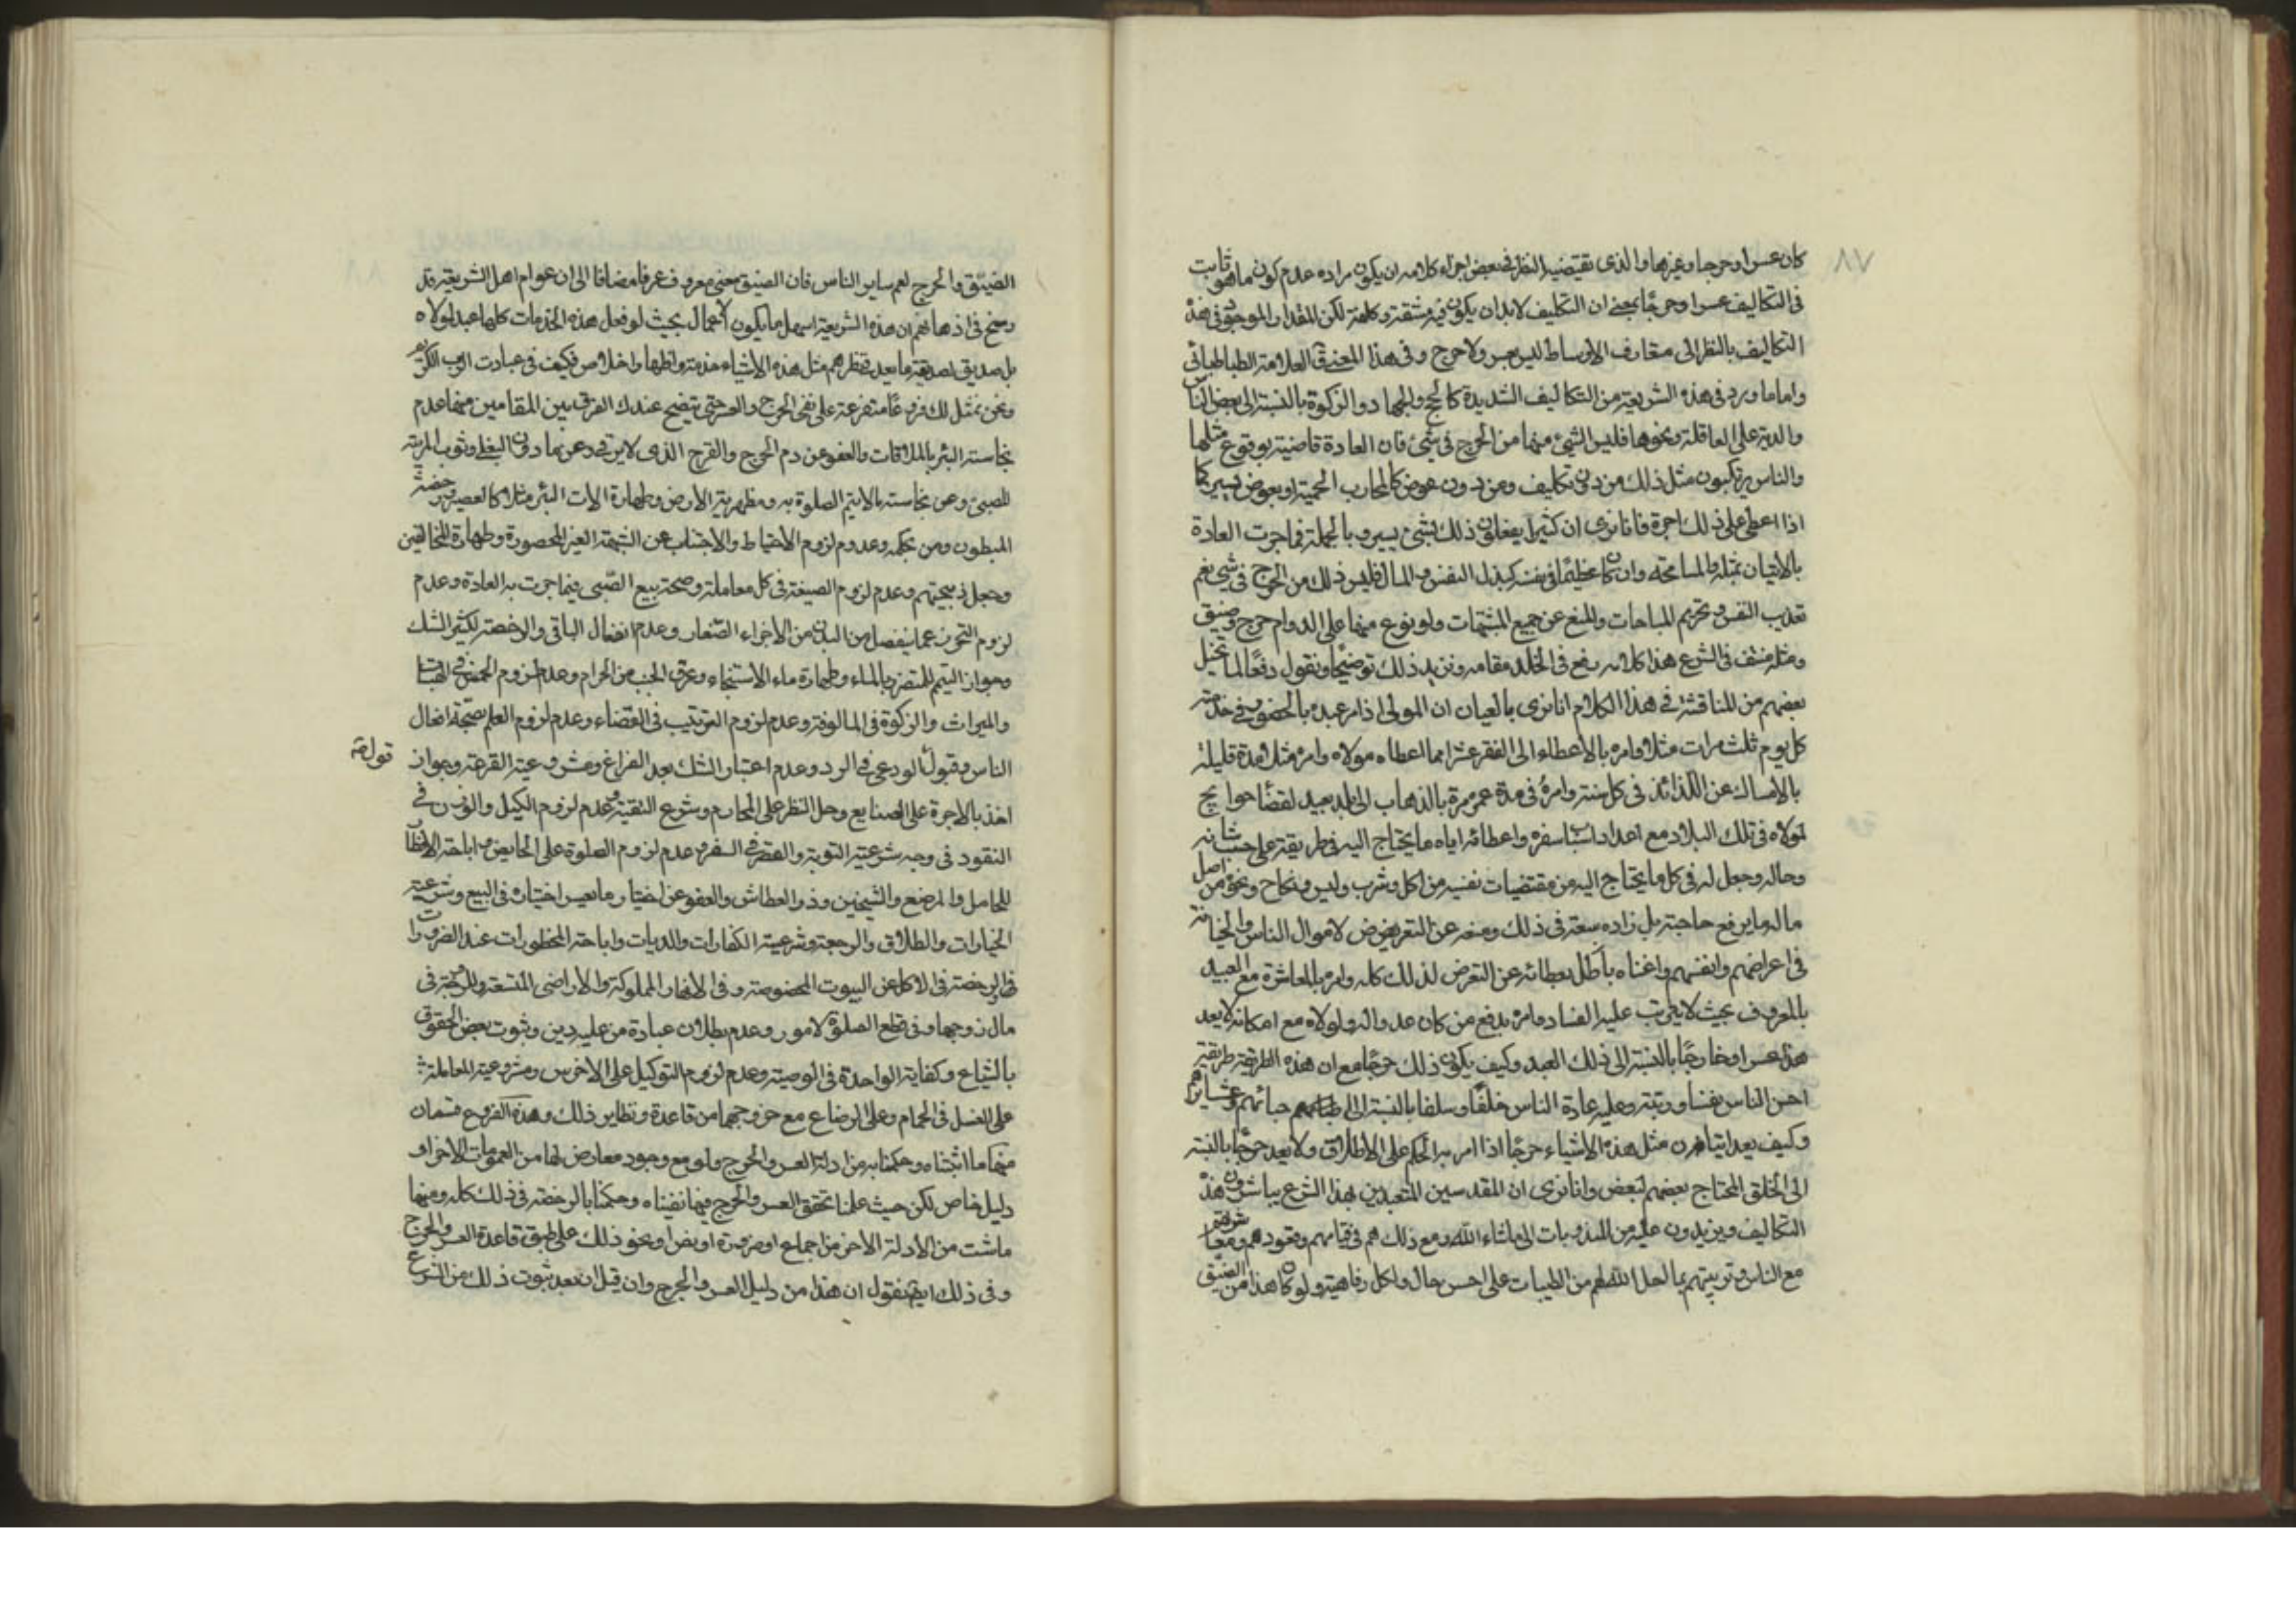 ٨٧
كان عسرا وحرجا وغيرها والذى يقتضيه النظر فى بعض اجزاء كلامه ان يكون مراده عدم كون ما هو ثابت
فى التكاليف عسرا وحرجًا بمعنى ان التكليف لابد ان يكون فيه مشقة وكلفة لكن المقدار الموجود فى هذه
التكاليف بالنظر الى متعارف الاوساط ليس بعسر ولا حرج وفى هذا المعنى قال العلامة الطباطبائى
واما ما ورد فى هذه الشريعة من التكاليف الشديدة كالحج والجهاد والزكوة بالنسبة الى بعض الناس
والدية على العاقلة ونحوها فليس الشئ منها من الحرج فى شئ فان العادة قاضية بوقوع مثلها
والناس يرتكبون مثل ذلك من دون تكليف ومن دون عوض كالمحارب الحمية او بعوض يسير كما
اذا اعطى على ذلك اجرة فانا نرى ان كثيرا يفعلون ذلك بشئ يسير وبالجملة فما جرت العادة
بالاتيان بمثله والمسامحة وان كان عظيمًا فى نفسه كبذل النفس والمال فليس ذلك من الحرج فى شئ نعم
تعذيب النفس وتحريم المباحات والمنع عن جميع المشتهيات ولو نوع منها على الدوام حرج وضيق
ومثله منتف فى الشرع هذا كلامه رفع فى الخلد مقامه ونزيد ذلك توضيحًا ونقول دفعًا لما تخيل
بعضهم من المناقشة فى هذا الكلام انا نرى بالعيان ان المولى اذا امر عبده بالحضور فى خدمته
كل يوم ثلث مرات مثلا وامره بالاعطاء الى الفقر عشرا مما اعطاه مولاه وامره مثل مدة قليلة
بالامساك عن اللذائذ فى كل سنة وامره فى مدة عمره مرة بالذهاب الى بلد بعيد لقضاء حوايج
لمولاه فى تلك البلاد مع اعداد اسباب سفره واعطائه اياه ما يحتاج اليه فى طريقه على حسب شانه
وحاله وجعل له فى كل ما يحتاج اليه من مقتضيات نفسه من اكل وشرب ولبس ونكاح ونحو من اصل
ماله ما يرفع حاجته بل زاده سعة فى ذلك ومنعه عن التعرض لاموال الناس والخيانة
فى اعراضهم وانفسهم واغناه باكمل عطائه عن التعرض لذلك كله وامره بالمعاشرة مع العبيد
بالمعروف بحيث لا يترتب عليه الفساد وامره بدفع من كان عدوا له ولمولاه مع امكانه لا يعد
هذا عسرا وخارجًا بالنسبة الى ذلك العبد وكيف يكون ذلك حرجًا مع ان هذه الطريقة طريقة
احسن الناس نفسا ورتبة وعليه عادة الناس خلفًا وسلفا بالنسبة الى احبائهم وعشايرهم
وكيف يعد اتيان مثل هذه الاشياء حرجًا اذا امر به الحكم على الاطلاق ولا يعد حرجًا بالنسبة
الى الخلق المحتاج بعضهم لبعض وانا نرى ان المقدسين المتعبدين بهذا الشرع يباشرون هذه
التكاليف ويزيدون عليه من المندوبات الى ماشاء الله ومع ذلك هم فى قيامهم وقعودهم ومعاشرتهم
مع الناس وتربيتهم بما احل الله لهم من الطيبات على احسن حال واكمل رفاهية ولو كان هذا من الضيق
الضيق والحرج لعم ساير الناس فان الضيق معنى معروف عرفا مضافا الى ان عوام اهل الشريعة قد
رسخ فى اذهانهم ان هذه الشريعة اسهل ما يكون الاعمال بحيث لو فعل هذه الخدمات كلها عبد لمولاه
بل صديق لصديقه ما يعد فى نظرهم مثل هذه الاشياء خدمة واظهار اخلاص فكيف فى عبادت الرب الاكبر
ونحن نمثل لك فروعًا متفرعة على نفى الحرج والعسر حتى يتضح عندك الفرق بين المقامين منها عدم
نجاسة البئر بالملاقات والعفو عن دم الجروح والقروح الذى لا يرقى وعن ما دون البغلى وثوب المربية
للصبى وعن نجاسة ما لا يتم الصلوة به ومطهرية الارض وطهارة الات البئر مثلا كالعصير ورخصة
المبطون ومن بحكمه وعدم لزوم الاحتياط والاجتناب عن الشبهة الغير المحصورة وطهارة المخالفين
وحل ذبيحتهم وعدم لزوم الصيغة فى كل معاملة وصحة بيع الصبى فيما جرت به العادة وعدم
لزوم التحرز عما ينفصل من البدن من الاجزاء الصغار وعدم انفعال الباقى والرخصة لكثير الشك
وجواز التيمم للمتضرر بالماء وطهارة ماء الاستنجاء وعرق الجنب من الحرام وعدم لزوم الخمس فى الهبات
والميراث والزكوة فى المالوفة وعدم لزوم الترتيب فى القضاء وعدم لزوم العلم بصحة افعال
الناس وقبول الودعى فى الرد وعدم اعتبار الشك بعد الفراغ ومشروعية القرعة وجواز
قوله
اخذ بالاجرة على الصنايع وحل النظر على المحارم وشرع التقية وعدم لزوم الكيل والوزن فى
النقود فى وجه شرعية التوبة والقصر فى السفر وعدم لزوم الصلوة على الحايض واباحة الافطار
للحامل والمرضع والشيخين وذو العطاش والعفو عن اختيار ما تعيس اختياره فى البيع وشرعية
الخيارات والطلاق والرجعة وشرعية الكفارات والديات واباحة المحظورات عند الضرورات
والرخصة فى الاكل عن البيوت المخصوصة وفى الانهار المملوكة والاراضى المتسعة وللزوجة فى
مال زوجها وفى قطع الصلوة لامور وعدم بطلان عبادة من عليه دين وثبوت بعض الحقوق
بالشياع وكفاية الواحدة فى الوصية وعدم لزوم التوكيل على الاخرس ومشروعية المعاملة
على الغسل فى الحمام وعلى الرضاع مع خروجهما من قاعدة ونظاير ذلك وهذه الفروع قسمان
منها ما اثبتناه وحكمنا به من ادلة العسر والحرج ولو مع وجود معارض لها من العمومات الاخر او
دليل خاص لكن حيث علمنا تحقق العسر والحرج فيها نفيناه وحكمنا بالرخصة فى ذلك كله ومنها
ما ثبت من الادلة الاخر من اجماع او ضرورة او نص او نحو ذلك على طبق قاعدة العسر والحرج
وفى ذلك ايضا نقول ان هذا من دليل العسر والحرج وان قيل ان بعد ثبوت ذلك من الشرع